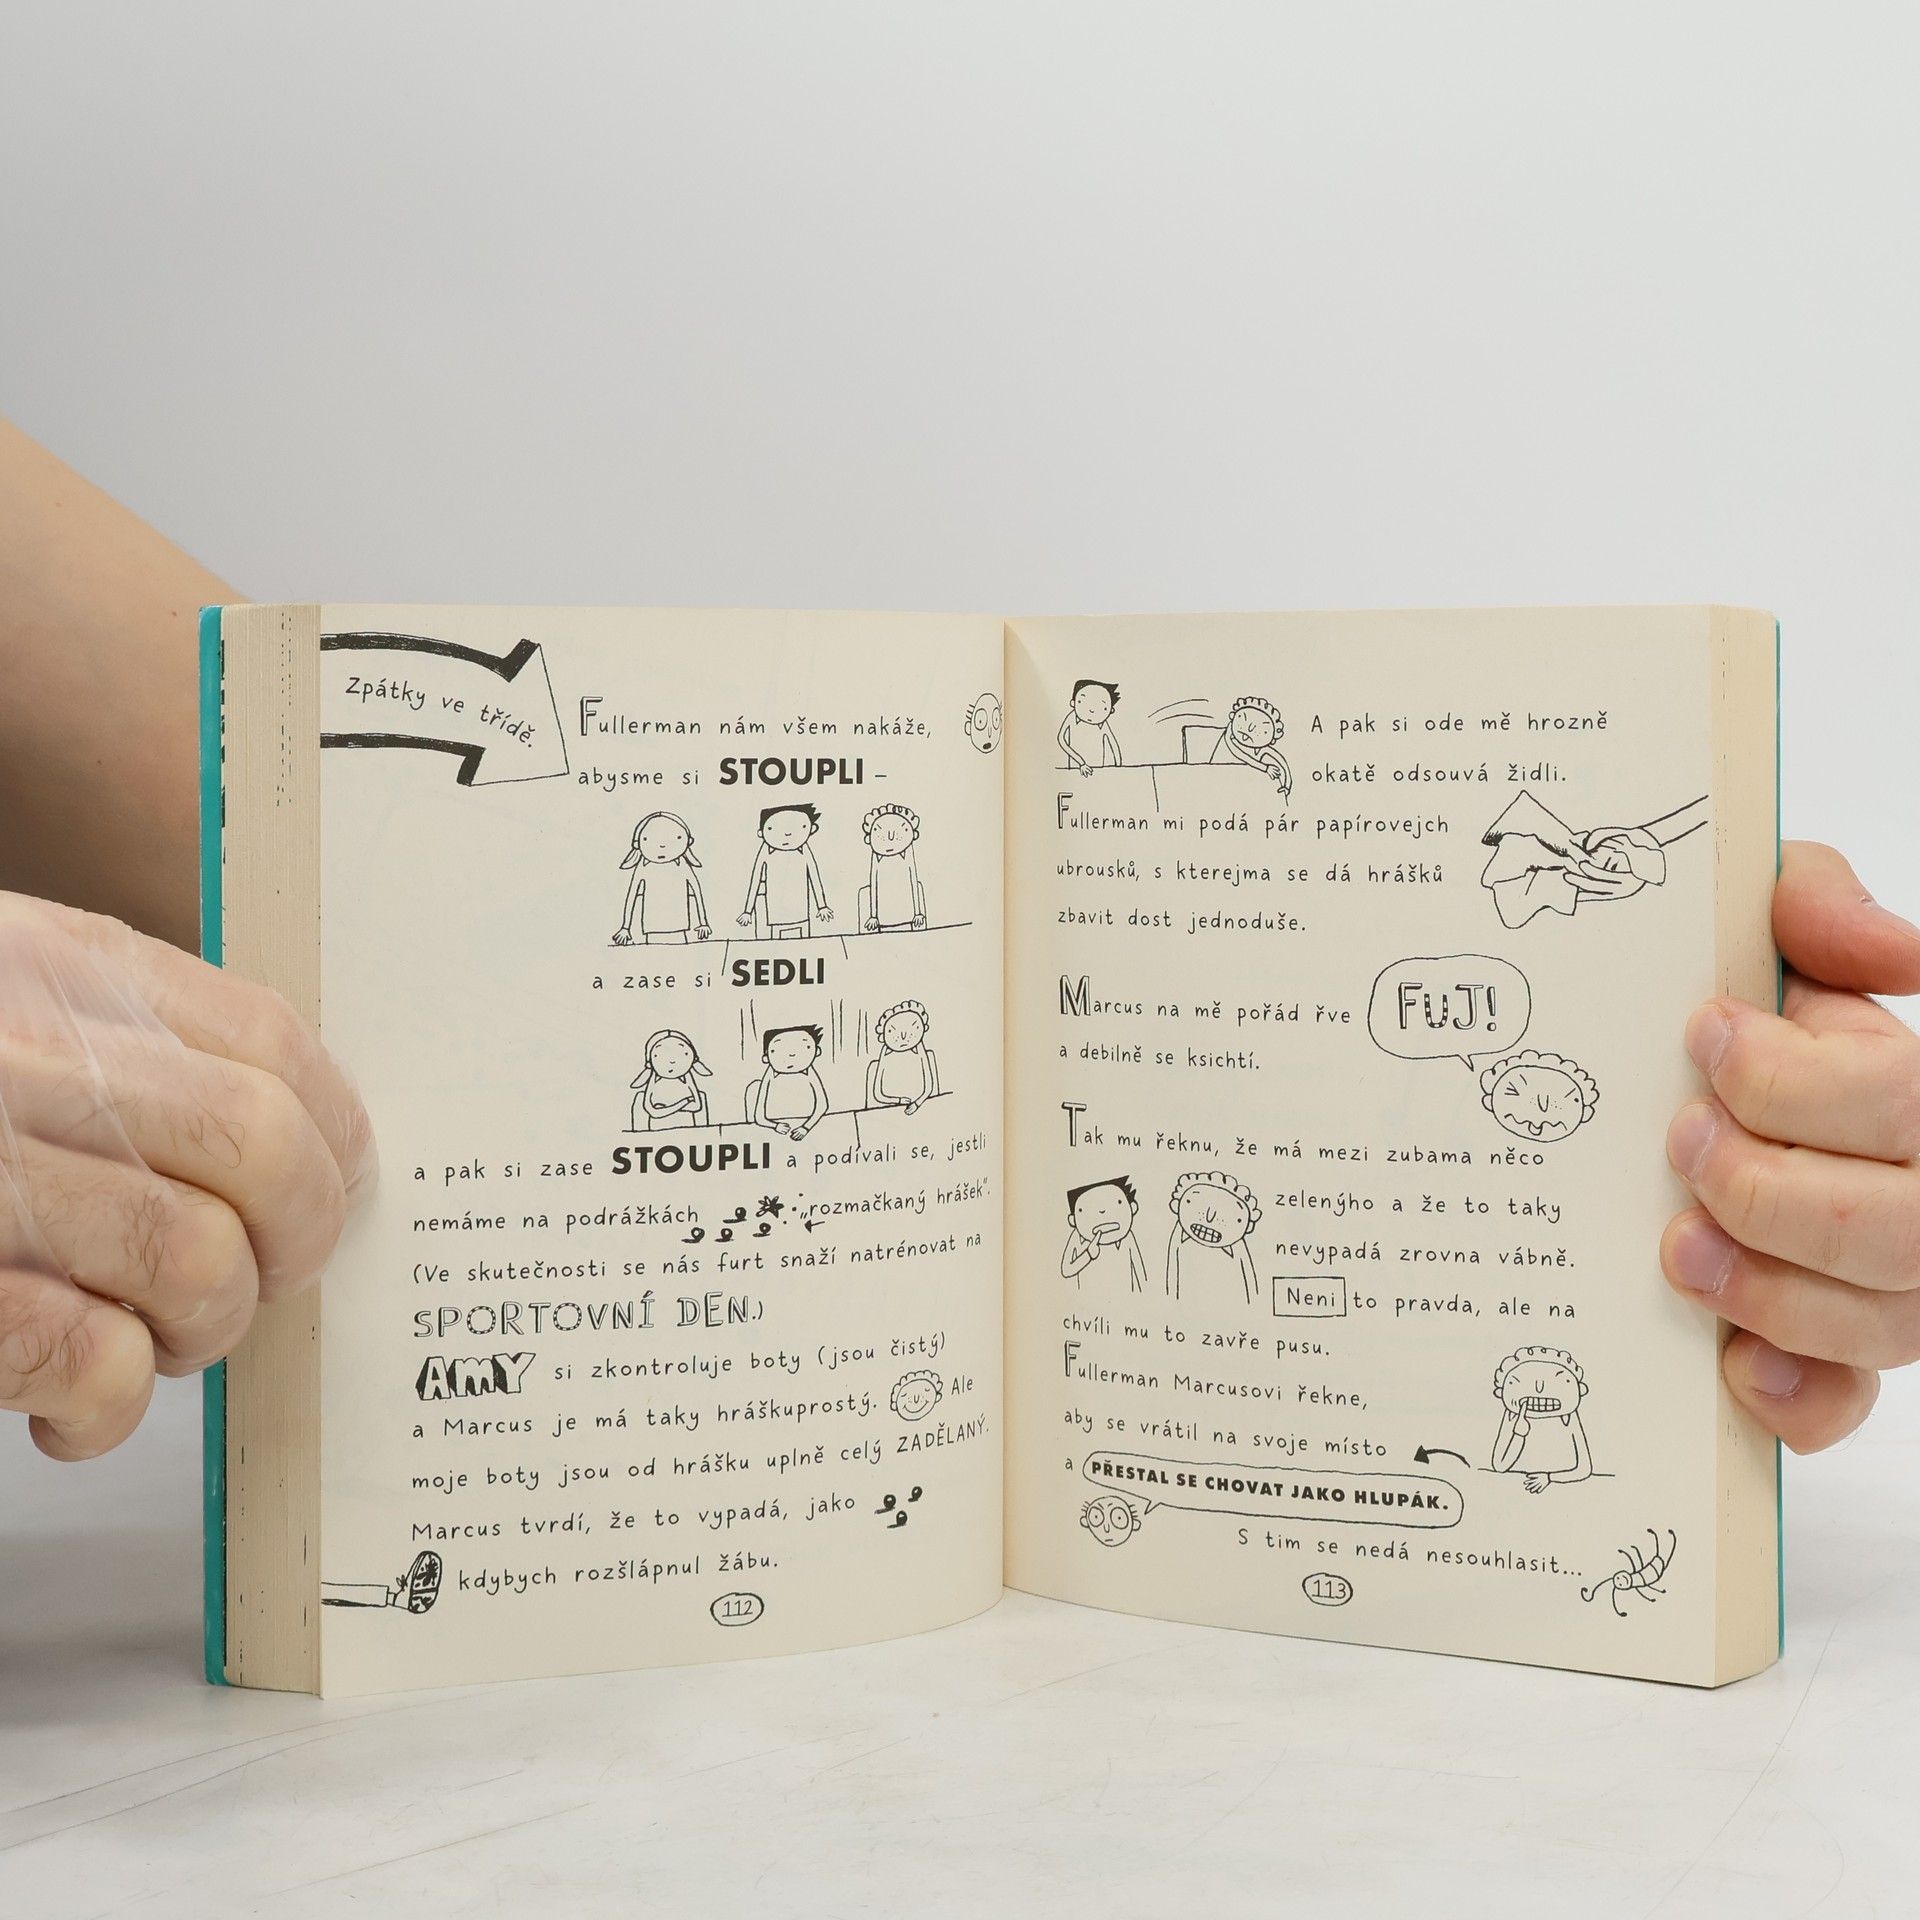 Zpátky ve třídě.
Fullerman nám všem nakáže,
abysme si STOUPLI –
a zase si SEDLI
a pak si zase STOUPLI a podívali se, jestli
nemáme na podrážkách „rozmačkaný hrášek".
(Ve skutečnosti se nás furt snaží natrénovat na
SPORTOVNÍ DEN.)
AMY si zkontroluje boty (jsou čistý)
a Marcus je má taky hráškuprostý. Ale
moje boty jsou od hrášku uplně celý ZADĚLANÝ.
Marcus tvrdí, že to vypadá, jako
kdybych rozšlápnul žábu.
112
A pak si ode mě hrozně
okatě odsouvá židli.
Fullerman mi podá pár papírovejch
ubrousků, s kterejma se dá hrášků
zbavit dost jednoduše.
Marcus na mě pořád řve
FUJ!
a debilně se ksichtí.
Tak mu řeknu, že má mezi zubama něco
zelenýho a že to taky
nevypadá zrovna vábně.
Neni to pravda, ale na
chvíli mu to zavře pusu.
Fullerman Marcusovi řekne,
aby se vrátil na svoje místo
a PŘESTAL SE CHOVAT JAKO HLUPÁK.
S tim se nedá nesouhlasit...
113